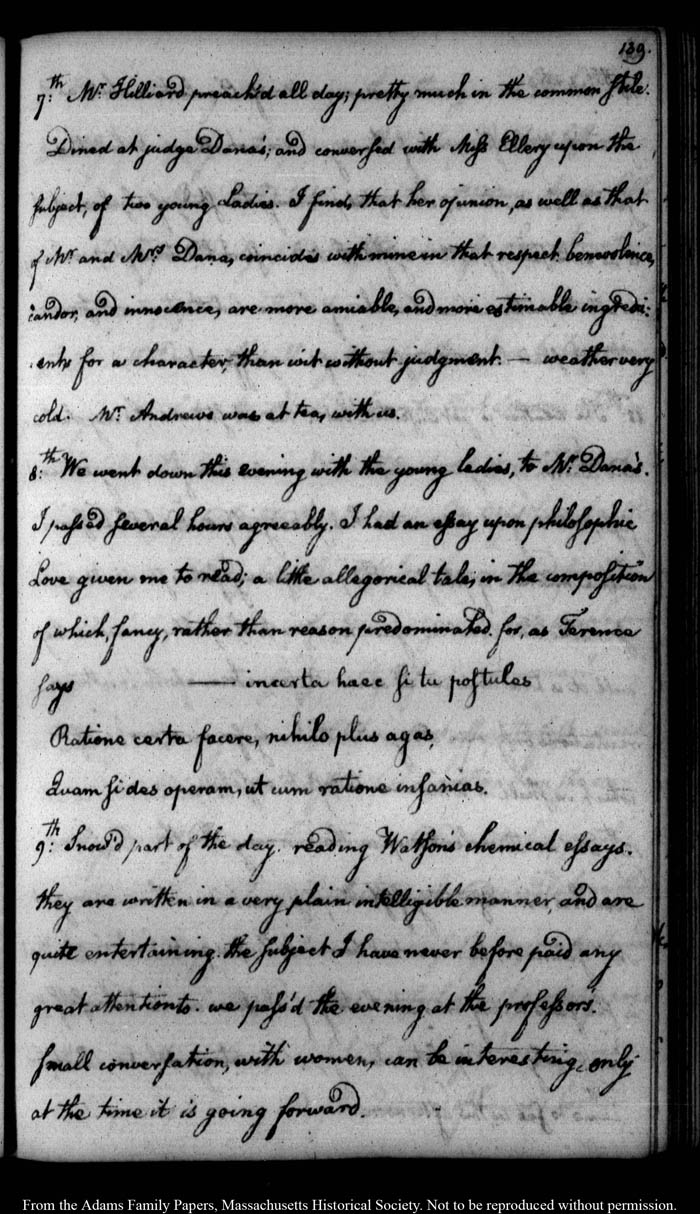 139.
7:th Mr. Hilliard preach'd all day; pretty much in the common stile.
Dined at judge Dana's; and conversed with Miss Ellery upon the
subject, of two young Ladies. I find, that her opinion, as well as that
of Mr. and Mrs. Dana, coincides with mine in that respect. benevolence,
candor, and innocence, are more amiable, and more estimable ingredi:
:ents for a character, than wit without judgment. — weather very
cold. Mr. Andrews was at tea, with us.
8:th We went down this evening with the young ladies, to Mr. Dana's.
I pass'd several hours agreeably. I had an essay upon philosophic
Love given me to read; a little allegorical tale, in the composition
of which, fancy, rather than reason predominated. for, as Terence
says —— incerta haec si tu postules
Ratione certa facere, nihilo plus agas,
Quam si des operam, ut cum ratione insanias.
9:th Snow'd part of the day. reading Watson's chemical essays.
they are written in a very plain intelligible manner, and are
quite entertaining. the subject I have never before paid any
great attention to. we pass'd the evening at the professors.
small conversation, with women, can be interesting, only
at the time it is going forward.
From the Adams Family Papers, Massachusetts Historical Society. Not to be reproduced without permission.